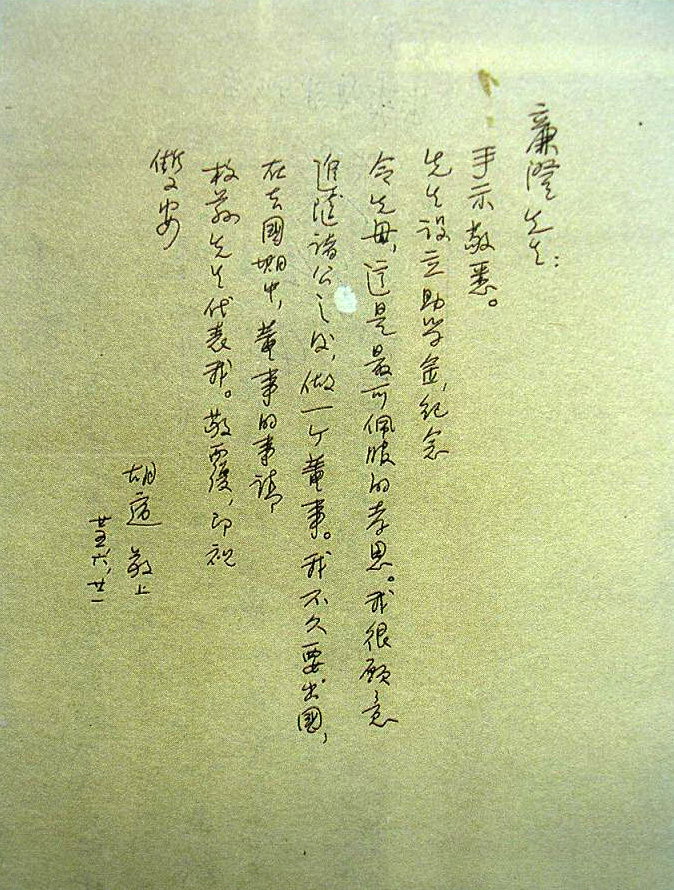 廉澄先生：
手示敬悉。
先生设立助学金，纪念
令先母，这是最可佩服的孝思。我很愿意
追随诸公之后，做一个董事。我不久要出國，
在去國期中，董事的事请
枚荪先生代表我。敬覆，即祝
儷安
胡适 敬上
廿五，六，廿一